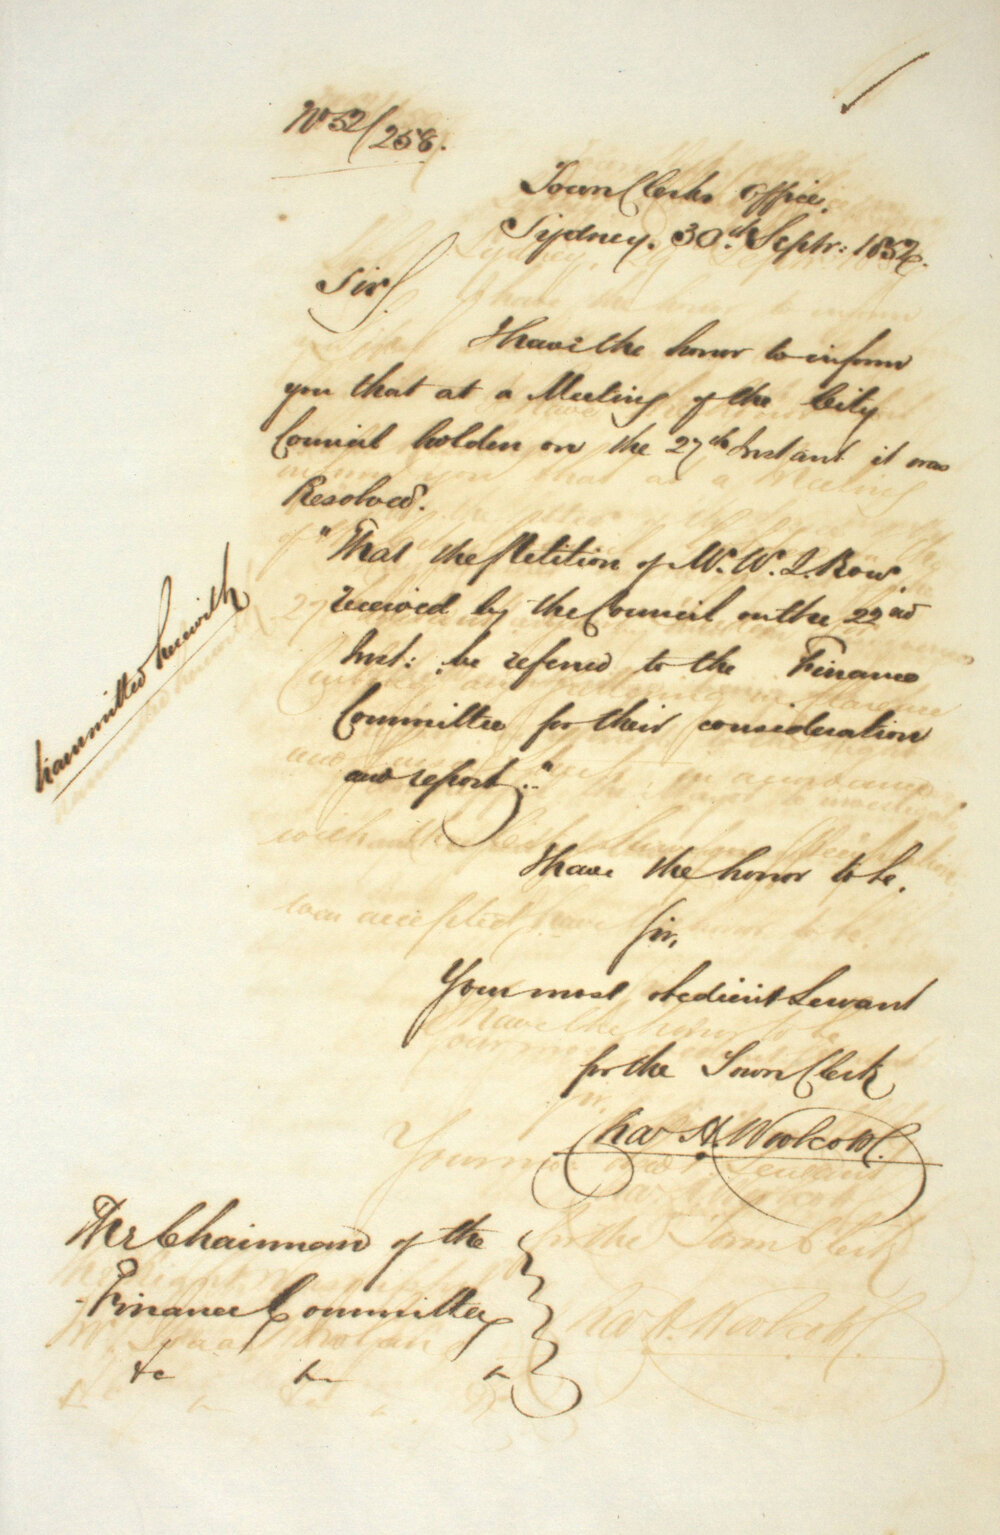 No 52/258.
Town Clerks Office.
Sydney. 30th Septr: 1852.
Sir,
I have the honor to inform
you that at a Meeting of the City
Council holden on the 27th Instant it was
Resolved.
"That the Petition of Mr. W. J. Row
received by the Council on the 22nd
Inst: be referred to the Finance
Committee for their consideration
and report."
Transmitted herewith
I have the honor to be,
Sir,
Your most obedient Servant
for the Town Clerk
Chas H. Woolcott.
The Chairman of the
Finance Committee
&c &c &c